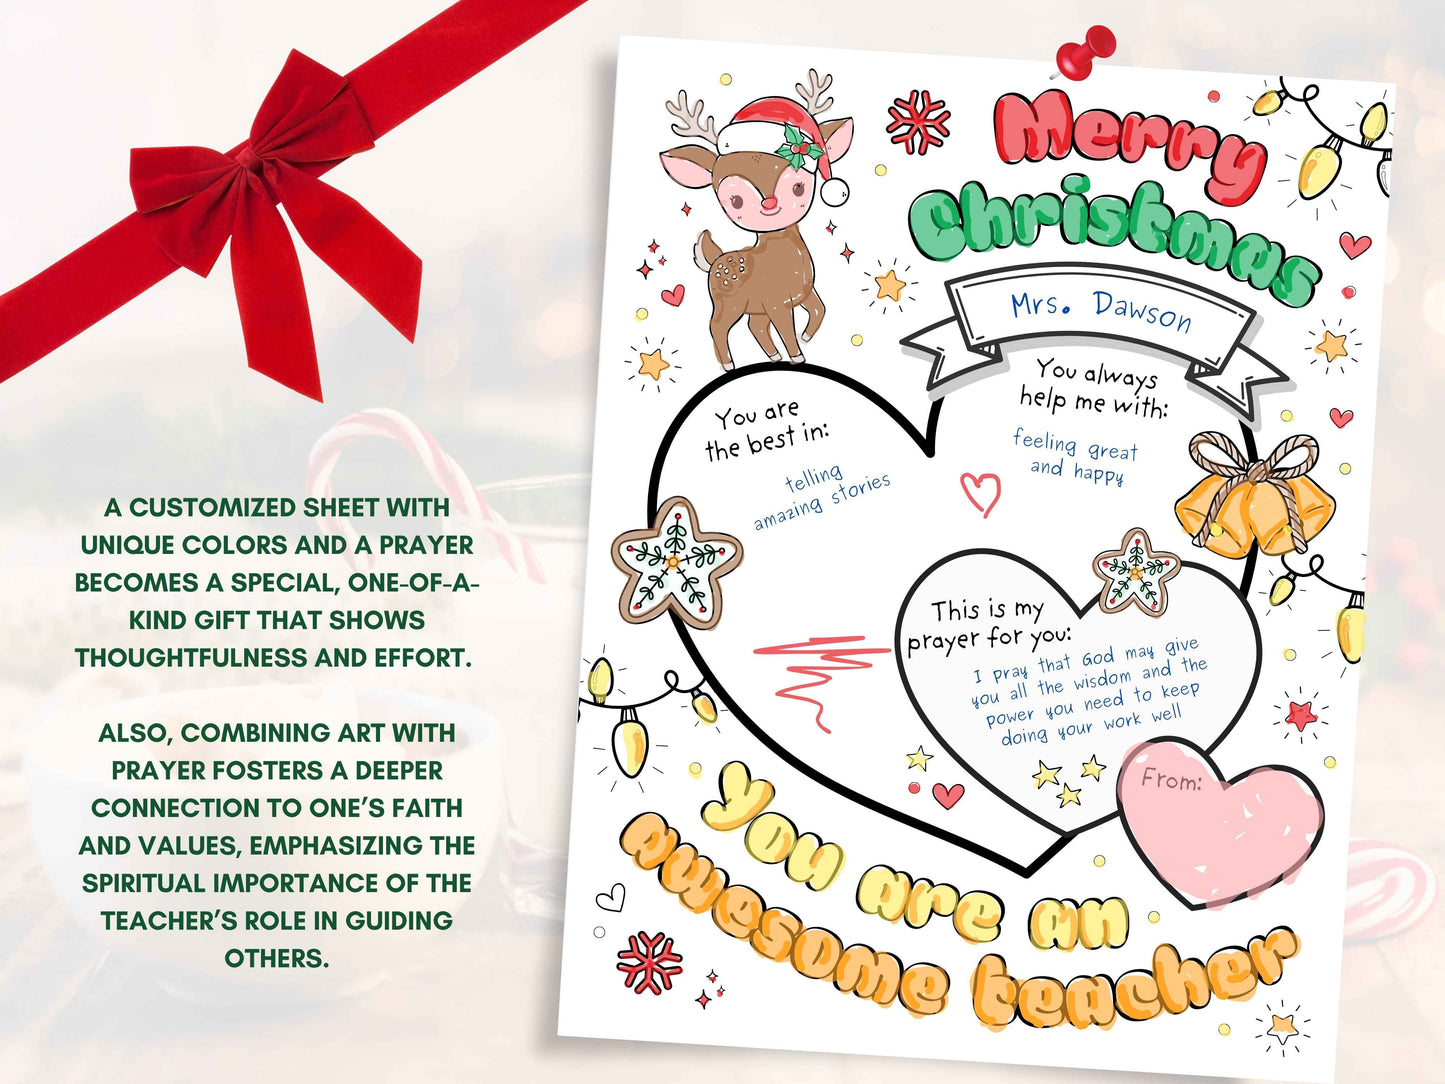 A CUSTOMIZED SHEET WITH
UNIQUE COLORS AND A PRAYER
BECOMES A SPECIAL, ONE-OF-A-
KIND GIFT THAT SHOWS
THOUGHTFULNESS AND EFFORT.
ALSO, COMBINING ART WITH
PRAYER FOSTERS A DEEPER
CONNECTION TO ONE'S FAITH
AND VALUES, EMPHASIZING THE
SPIRITUAL IMPORTANCE OF THE
TEACHER'S ROLE IN GUIDING
OTHERS.
Merry
Christmas
Mrs. Dawson
You are
the best in:
telling
amazing stories
You always
help me with:
feeling great
and happy
This is my
prayer for you:
I pray that God may give
you all the wisdom and the
power you need to keep
doing your work well
From:
You are an
awesome teacher